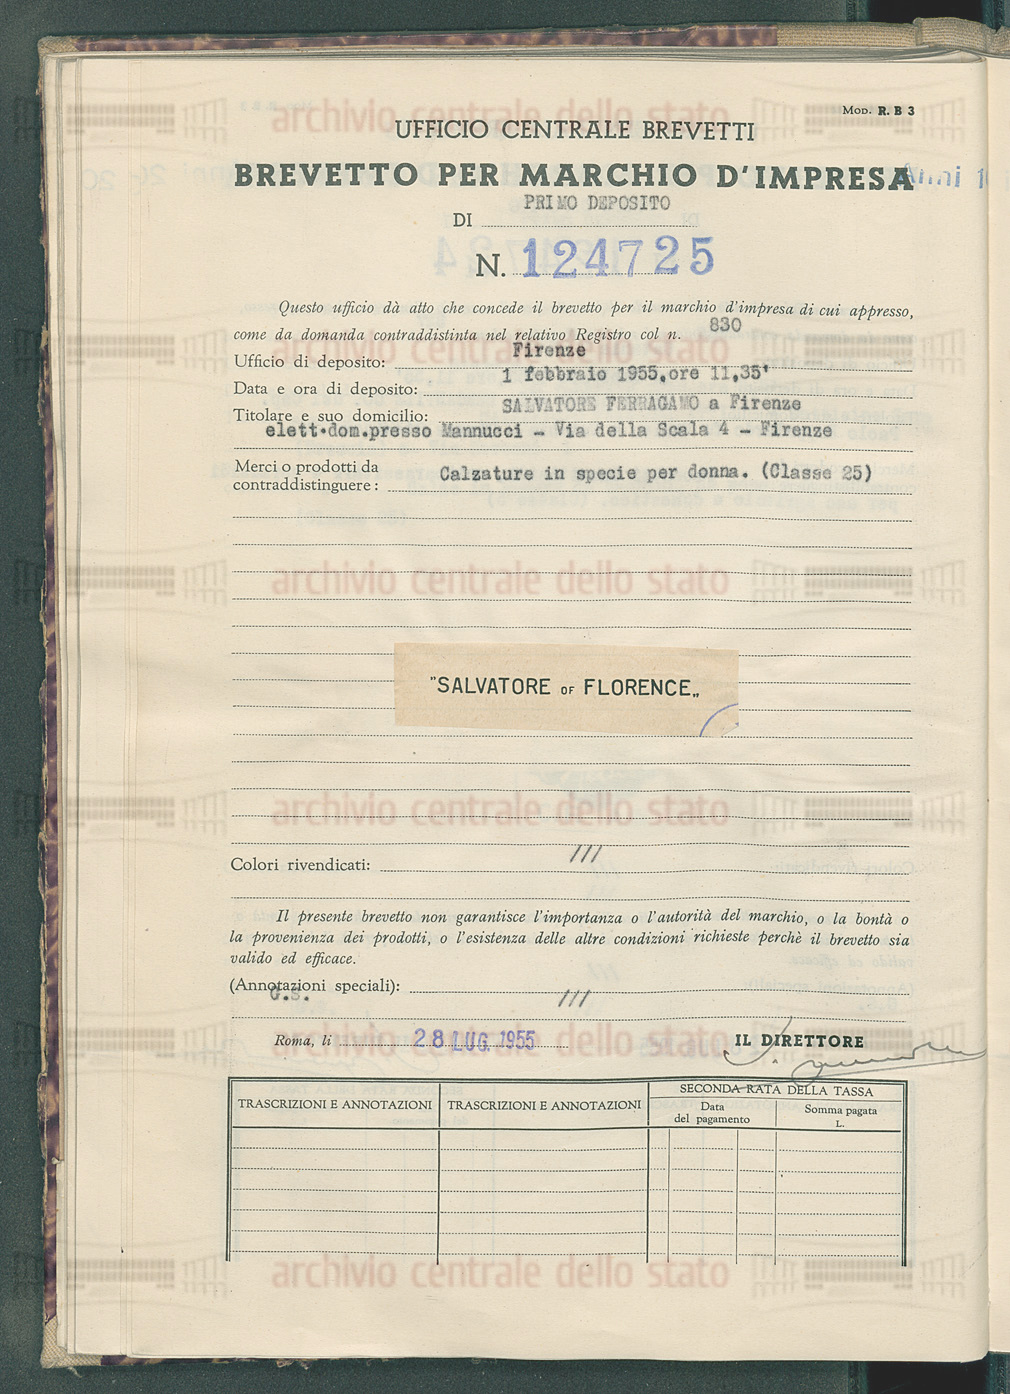 Mod. R. B 3
UFFICIO CENTRALE BREVETTI
BREVETTO PER MARCHIO D'IMPRESA
PRIMO DEPOSITO
DI
N. 124725
Questo ufficio dà atto che concede il brevetto per il marchio d'impresa di cui appresso,
come da domanda contraddistinta nel relativo Registro col n. 830
Ufficio di deposito: Firenze
Data e ora di deposito: 1 febbraio 1955,ore 11,35'
Titolare e suo domicilio: SALVATORE FERRAGAMO a Firenze
elett.dom.presso Mannucci - Via della Scala 4 - Firenze
Merci o prodotti da
contraddistinguere: Calzature in specie per donna. (Classe 25)
archivio centrale dello stato
"SALVATORE OF FLORENCE„
archivio centrale dello stato
Colori rivendicati: ///
Il presente brevetto non garantisce l'importanza o l'autorità del marchio, o la bontà o
la provenienza dei prodotti, o l'esistenza delle altre condizioni richieste perchè il brevetto sia
valido ed efficace.
(Annotazioni speciali): ///
G.S.
Roma, li 28 LUG. 1955 IL DIRETTORE
TRASCRIZIONI E ANNOTAZIONI TRASCRIZIONI E ANNOTAZIONI SECONDA RATA DELLA TASSA
Data
del pagamento
Somma pagata
L.
archivio centrale dello stato